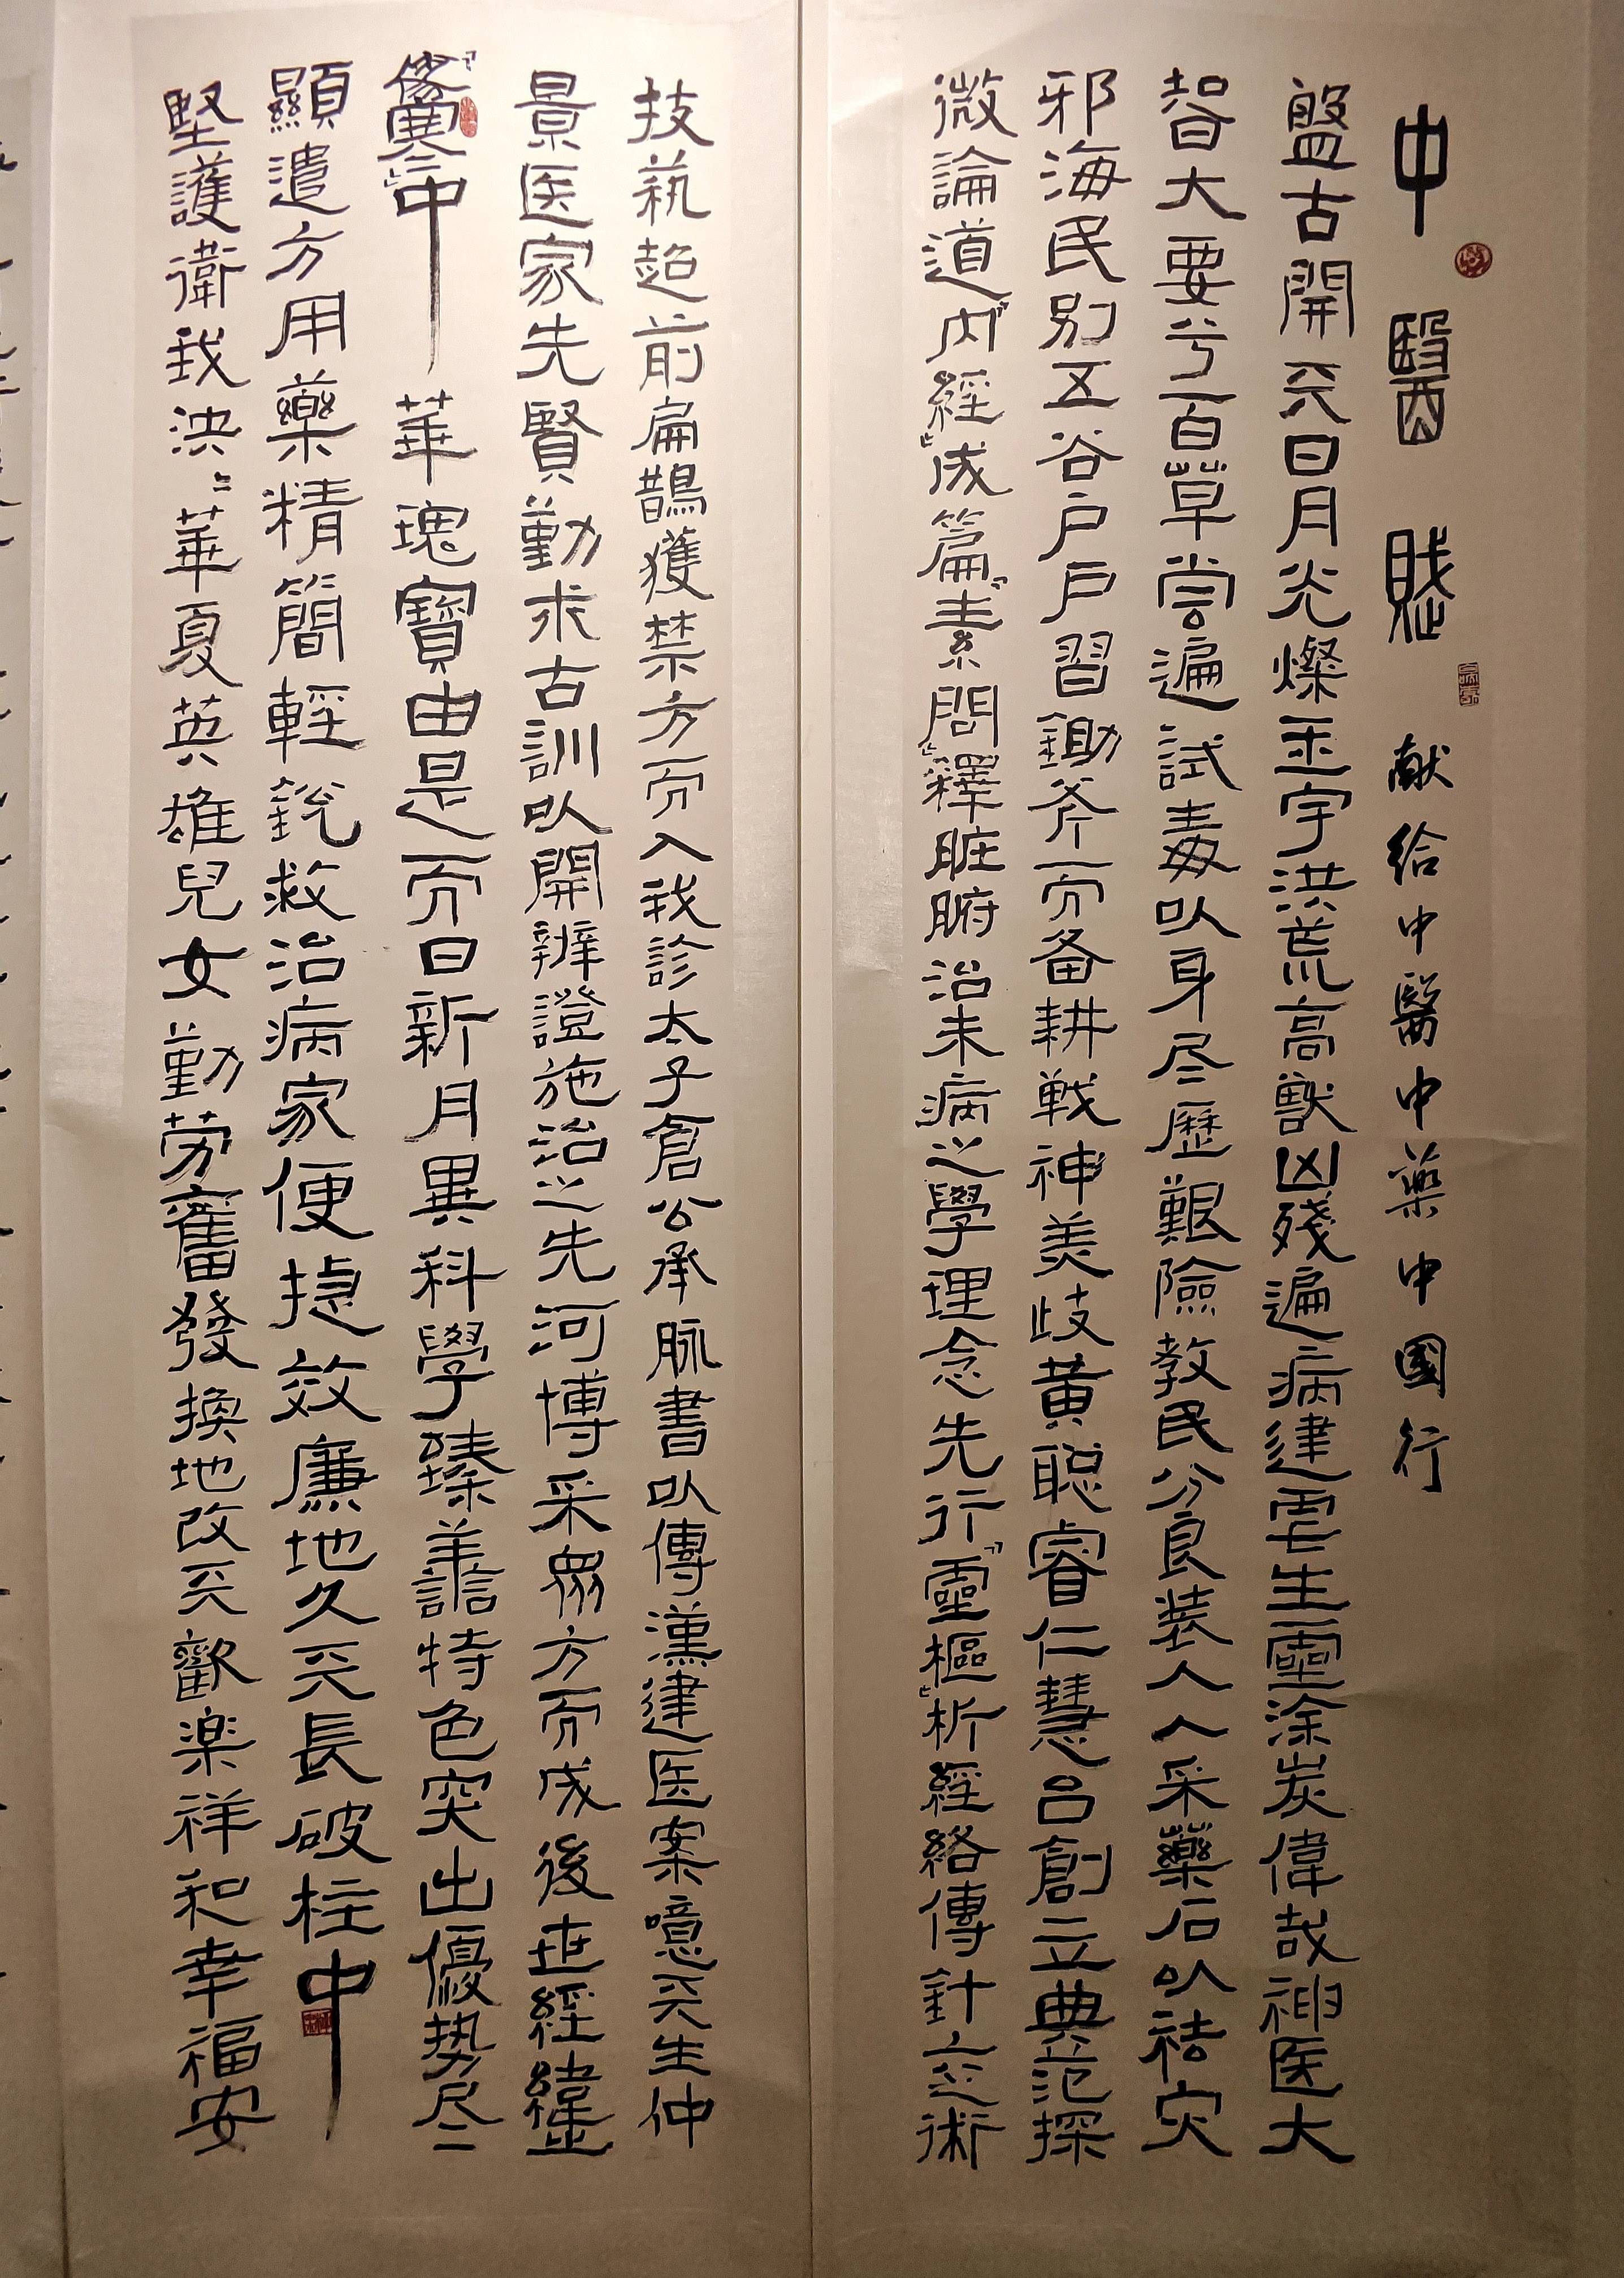 中醫賦 献给中醫中藥中國行
盤古開天日月光燦玉宇洪荒高獸凶殘遍病建霊生靈涂炭偉哉神医大
智大要兮百草尝遍試毒以身尽歷艱險教民分良莠人人采藥石以祛灾
邪海民别五谷户户習鋤斧而备耕戦神美歧黄聪睿仁慧吕創立典范探
微論道「内經」成篇「素問」釋脏腑治未病之學理念先行「靈樞」析經絡傳針立術
技藝超前扁鵲獲禁方而入我診太子倉公承脉書以傳漢建医案噫天生仲
景医家先賢勤求古訓以開辨證施治之先河博采眾方而成後世經緯
中華瑰寶由是而日新月異科學臻善譫特色突出優势尽
顯遣方用藥精簡輕銳救治病家便捷效廉地久天長破柱中
堅護衛我泱泱華夏英雄兒女勤劳奮發換地改天歡楽祥和幸福安